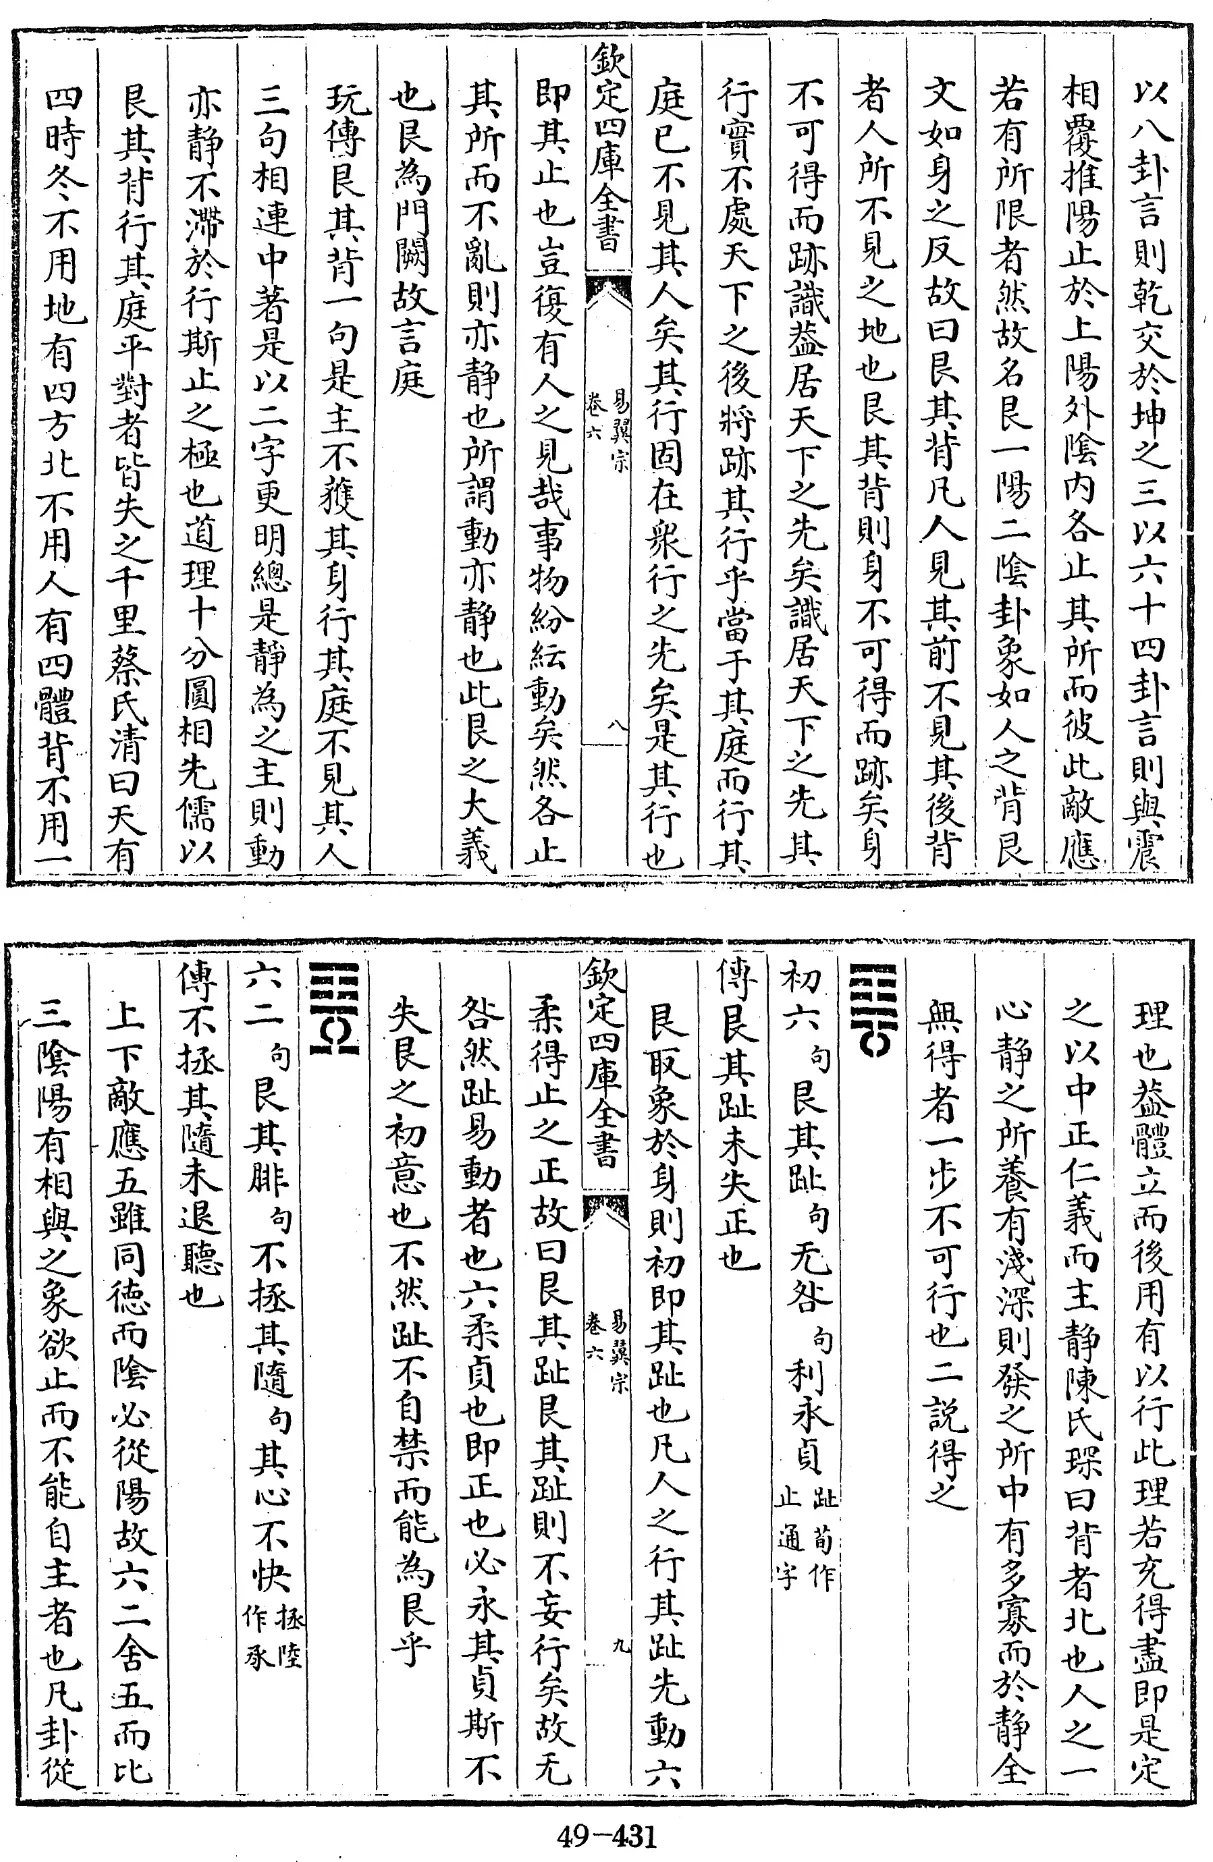 以八卦言則乾交於坤之三以六十四卦言則與震
相覆推陽止於上陽外陰内各止其所而彼此敵應
若有所限者然故名艮一陽二陰卦象如人之背艮
文如身之反故曰艮其背凡人見其前不見其後背
者人所不見之地也艮其背則身不可得而跡矣身
不可得而跡識葢居天下之先矣識居天下之先其
行實不處天下之後將跡其行乎當于其庭而行其
庭已不見其人矣其行固在衆行之先矣是其行也
欽定四庫全書
易翼宗
卷六
八
即其止也豈復有人之見哉事物紛紜動矣然各止
其所而不亂則亦静也所謂動亦静也此艮之大義
也艮為門闕故言庭
玩傳艮其背一句是主不獲其身行其庭不見其人
三句相連中著是以二字更明總是靜為之主則動
亦静不滯於行斯止之極也道理十分圓相先儒以
艮其背行其庭平對者皆失之千里蔡氏清曰天有
四時冬不用地有四方北不用人有四體背不用一
理也葢體立而後用有以行此理若充得盡即是定
之以中正仁義而主靜陳氏琛曰背者北也人之一
心静之所養有淺深則發之所中有多寡而於静全
無得者一步不可行也二説得之
初六句艮其趾句无咎句利永貞趾荀作止通字
傳艮其趾未失正也
艮取象於身則初即其趾也凡人之行其趾先動六
欽定四庫全書
易翼宗
卷六
九
柔得止之正故曰艮其趾艮其趾則不妄行矣故无
咎然趾易動者也六柔貞也即正也必永其貞斯不
失艮之初意也不然趾不自禁而能為艮乎
六二句艮其腓句不拯其隨句其心不快拯陸作承
傳不拯其隨未退聽也
上下敵應五雖同徳而陰必從陽故六二舍五而比
三陰陽有相與之象欲止而不能自主者也凡卦從
49-431